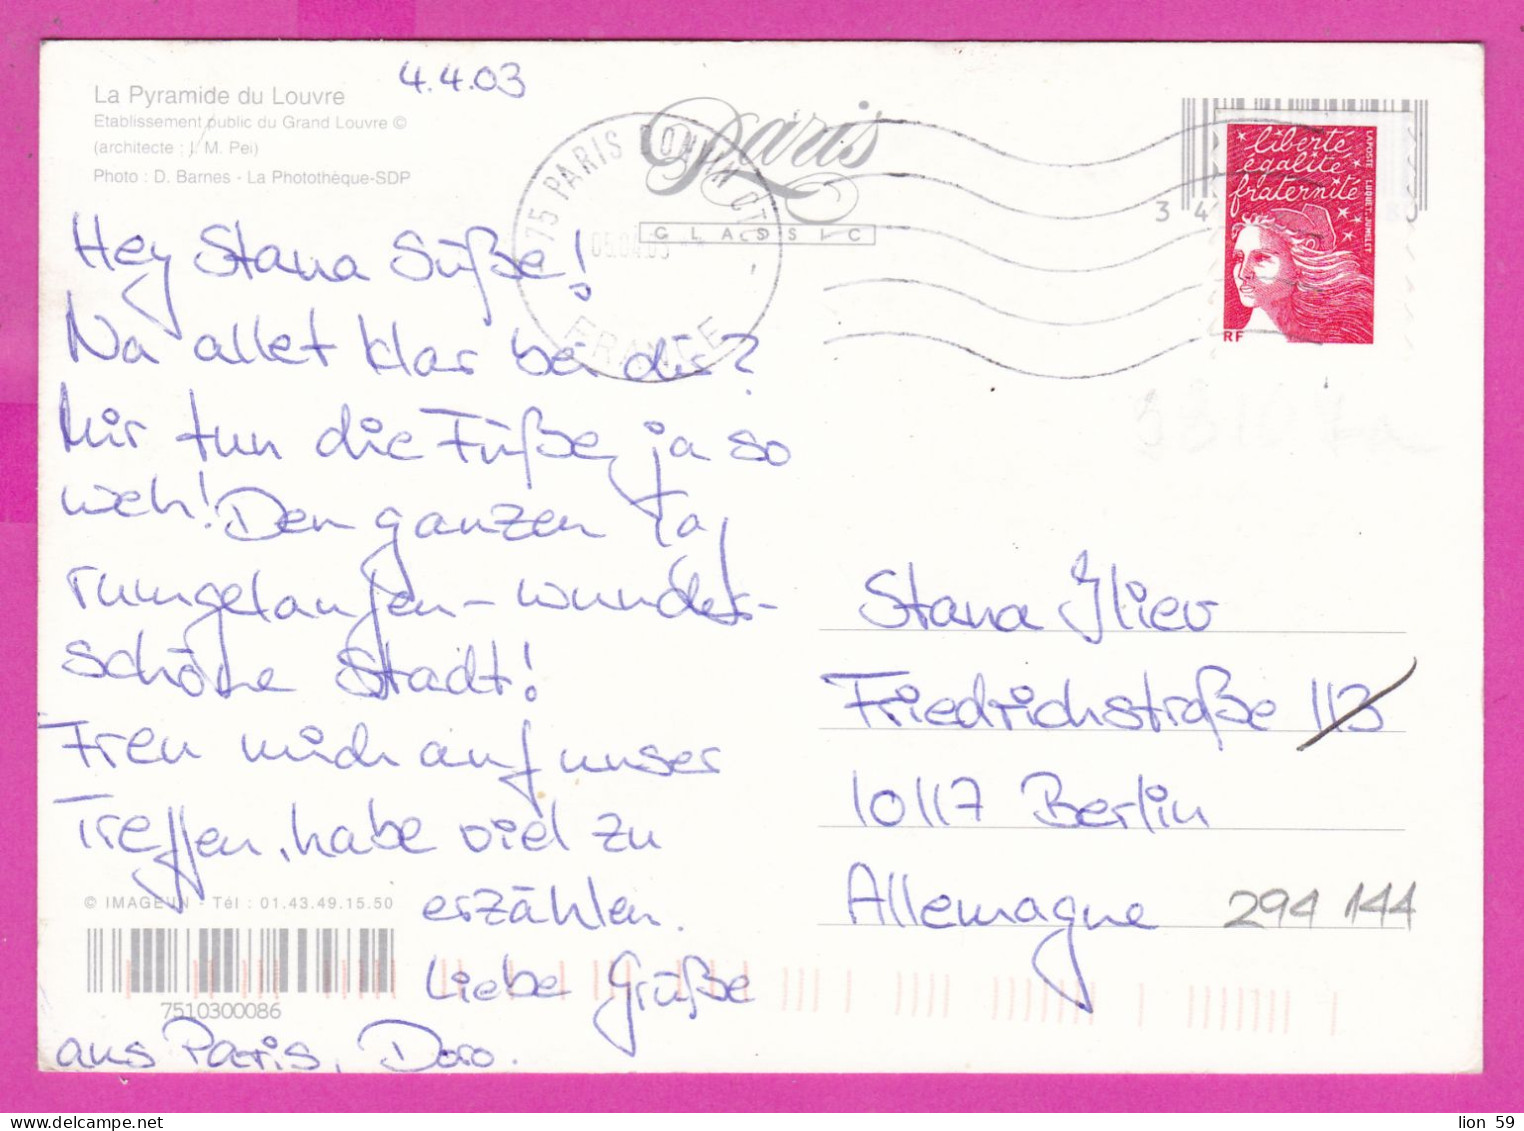 4.4.03
La Pyramide du Louvre
Etablissement public du Grand Louvre ©
(architecte : I. M. Pei)
Photo : D. Barnes - La Photothèque-SDP
Paris
CLASSIC
75 PARIS
05.04.03
FRANCE
liberté
égalité
fraternité
LAPOSTE LUQUET-JUMELET
RF
3 4
Hey Stana Süße!
Na allet klar bei dir?
Mir tun die Füße ja so
weh! Den ganzen Tag
rumgelaufen - wunder-
schöne Stadt!
Freu mich auf unser
Treffen, habe viel zu
erzählen.
Liebe Grüße
aus Paris, Doro.
Stana Iliev
Friedrichstraße 113
10117 Berlin
Allemagne
294 144
© IMAGE'IN - Tél : 01.43.49.15.50
7510300086
lion 59